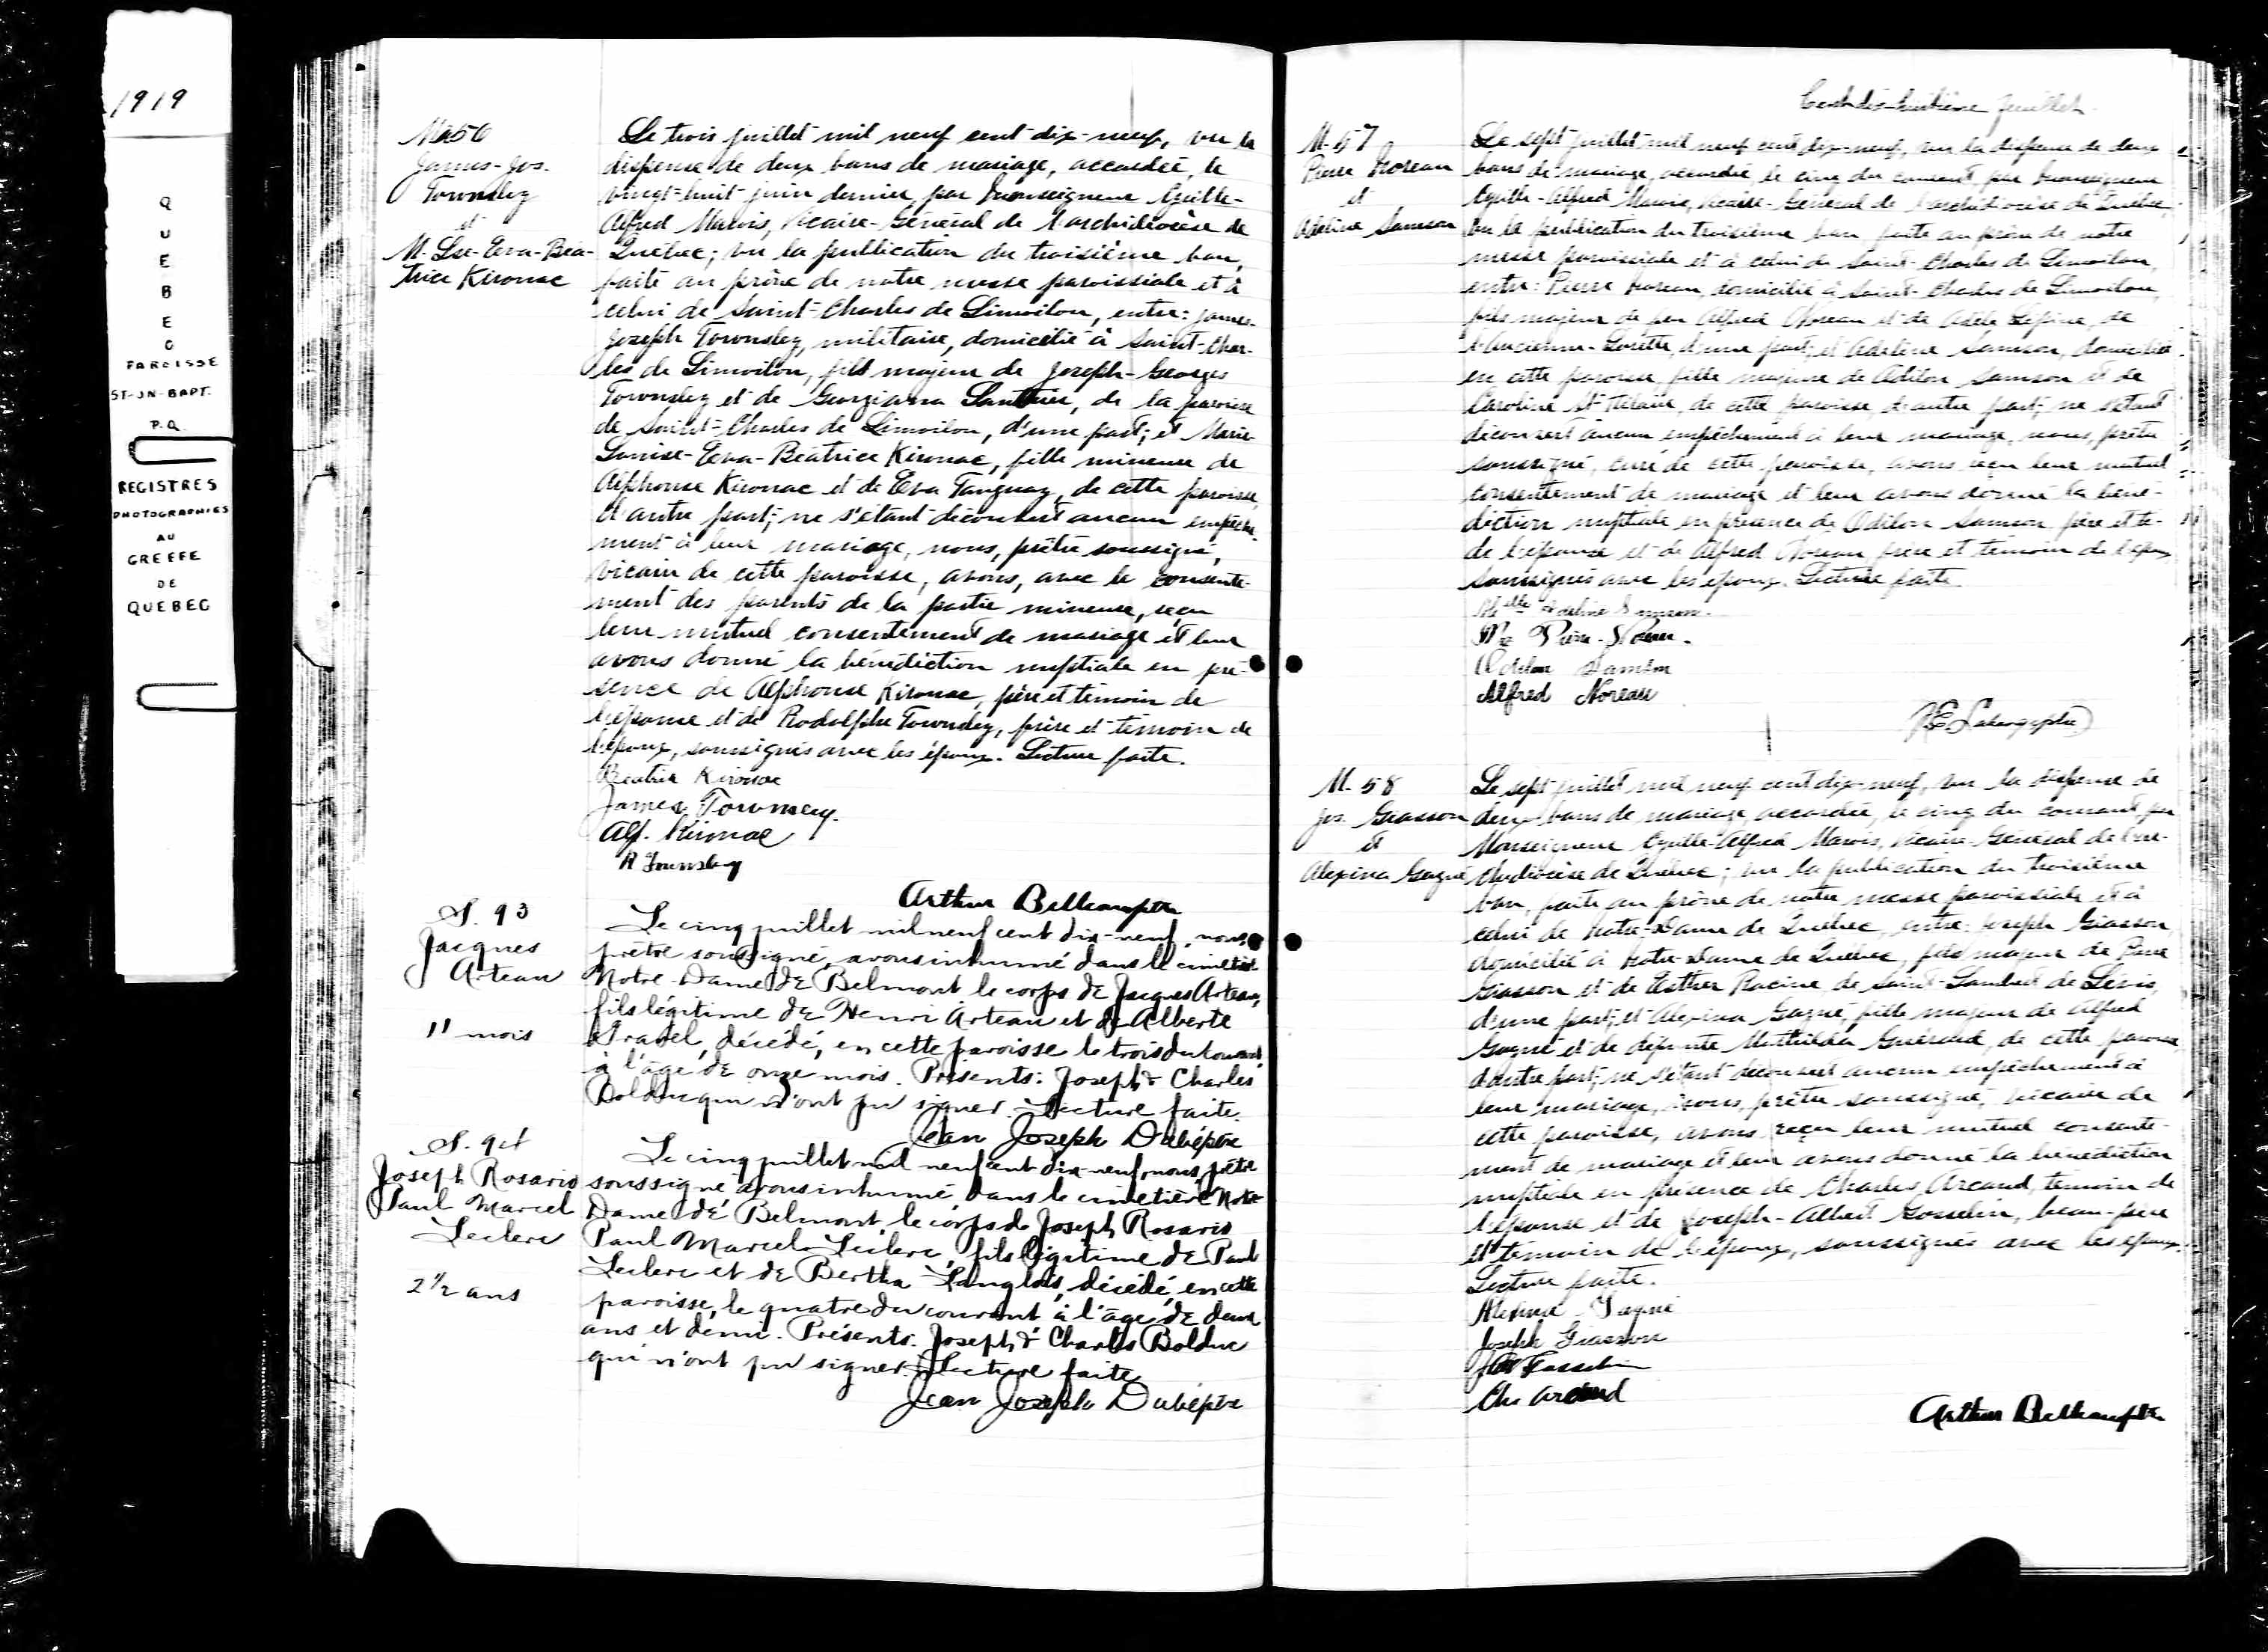 1919
QUEBEC
PAROISSE
ST-JN-BAPT.
P.Q.
REGISTRES
PHOTOGRAPHIES
AU
GREFFE
DE
QUEBEC
M. 56
James-Jos.
Townsley
et
M. Lse-Eva-Béa-
trice Kirouac
Le trois juillet mil neuf cent dix-neuf, vu la
dispense de deux bans de mariage, accordée, le
vingt-huit juin dernier, par Monseigneur Cyrille-
Alfred Marois, Vicaire-Général de l'archidiocèse de
Québec; vu la publication du troisième ban,
faite au prône de notre messe paroissiale et à
celui de Saint-Charles de Limoilou, entre: James-
Joseph Townsley, militaire, domicilié à Saint-Char-
les de Limoilou, fils majeur de Joseph-Georges
Townsley et de Georgiana Gauthier, de la paroisse
de Saint-Charles de Limoilou, d'une part; et Marie-
Louise-Eva-Béatrice Kirouac, fille mineure de
Alphonse Kirouac et de Eva Tanguay, de cette paroisse,
d'autre part; ne s'étant découvert aucun empêche-
ment à leur mariage, nous, prêtre soussigné,
vicaire de cette paroisse, avons, avec le consente-
ment des parents de la partie mineure, reçu
leur mutuel consentement de mariage et leur
avons donné la bénédiction nuptiale en pré-
sence de Alphonse Kirouac, père et témoin de
l'épouse et de Rodolphe Townsley, frère et témoin de
l'époux, soussignés avec les époux. Lecture faite.
Béatrice Kirouac
James Townsley.
Alf. Kirouac
R Townsley
Arthur Belleau ptre
S. 93
Jacques
Arteau
11 mois
Le cinq juillet mil neuf cent dix-neuf, nous
prêtre soussigné, avons inhumé dans le cimetière
Notre-Dame de Belmont le corps de Jacques Arteau,
fils légitime de Henri Arteau et de Alberte
décédé, en cette paroisse le trois du courant,
à l'âge de onze mois. Présents: Joseph & Charles
Bolduc qui n'ont pu signer. Lecture faite.
Jean Joseph Dubé ptre
S. 94
Joseph Rosario
Paul Marcel
Leclerc
2 1/2 ans
Le cinq juillet mil neuf cent dix-neuf, nous, prêtre
soussigné avons inhumé dans le cimetière Notre
Dame de Belmont, le corps de Joseph Rosario
Paul Marcel Leclerc, fils légitime de Paul
Leclerc et de Bertha Langlois, décédé, en cette
paroisse, le quatre du courant à l'âge de deux
ans et demi. Présents: Joseph & Charles Bolduc
qui n'ont pu signer. Lecture faite
Jean Joseph Dubé ptre
Cent dix-huitième feuillet
M. 57
Pierre Noreau
et
Adeline Samson
Le sept juillet mil neuf cent dix-neuf, vu la dispense de deux
bans de mariage, accordée, le cinq du courant, par Monseigneur
Cyrille-Alfred Marois, Vicaire-Général de l'archidiocèse de Québec,
vu la publication du troisième ban faite au prône de notre
messe paroissiale et à celui de Saint-Charles de Limoilou,
entre: Pierre Noreau, domicilié à Saint-Charles de Limoilou,
fils majeur de feu Alfred Noreau et de Adèle Lépine, de
l'Ancienne-Lorette, d'une part; et Adeline Samson, domiciliée
en cette paroisse, fille majeure de Odilon Samson et de
Caroline St-Hilaire, de cette paroisse, d'autre part; ne s'étant
découvert aucun empêchement à leur mariage, nous, prêtre
soussigné, curé de cette paroisse, avons reçu leur mutuel
consentement de mariage et leur avons donné la béné-
diction nuptiale en présence de Odilon Samson père et té-
de l'épouse et de Alfred Noreau, frère et témoin de l'époux
soussignés avec les époux. Lecture faite.
Melle Adeline Samson.
Mr Pierre Noreau.
Odilon Samson
Alfred Noreau
M. 58
Jos. Giasson
et
Alexina Gagné
Le sept juillet mil neuf cent dix-neuf, vu la dispense de
deux bans de mariage, accordée, le cinq du courant, par
Monseigneur Cyrille-Alfred Marois, Vicaire-Général de l'ar-
chidiocèse de Québec; vu la publication du troisième
ban, faite au prône de notre messe paroissiale et à
celui de Notre-Dame de Québec, entre: Joseph Giasson,
domicilié à Notre-Dame de Québec, fils majeur de Pierre
Giasson et de Esther Racine, de Saint-Lambert de Lévis,
d'une part; et Alexina Gagné, fille majeure de Alfred
Gagné et de défunte Mathilda Guérard, de cette paroisse,
d'autre part; ne s'étant découvert aucun empêchement à
leur mariage, nous, prêtre soussigné, vicaire de
cette paroisse, avons reçu leur mutuel consente-
ment de mariage et leur avons donné la bénédiction
nuptiale en présence de Charles Arcand, témoin de
l'épouse et de Joseph-Albert Gosselin, beau-père
et témoin de l'époux, soussignés avec les époux.
Lecture faite.
Alexina Gagné
Joseph Giasson
Gosselin
Chs Arcand
Arthur Belleau ptre